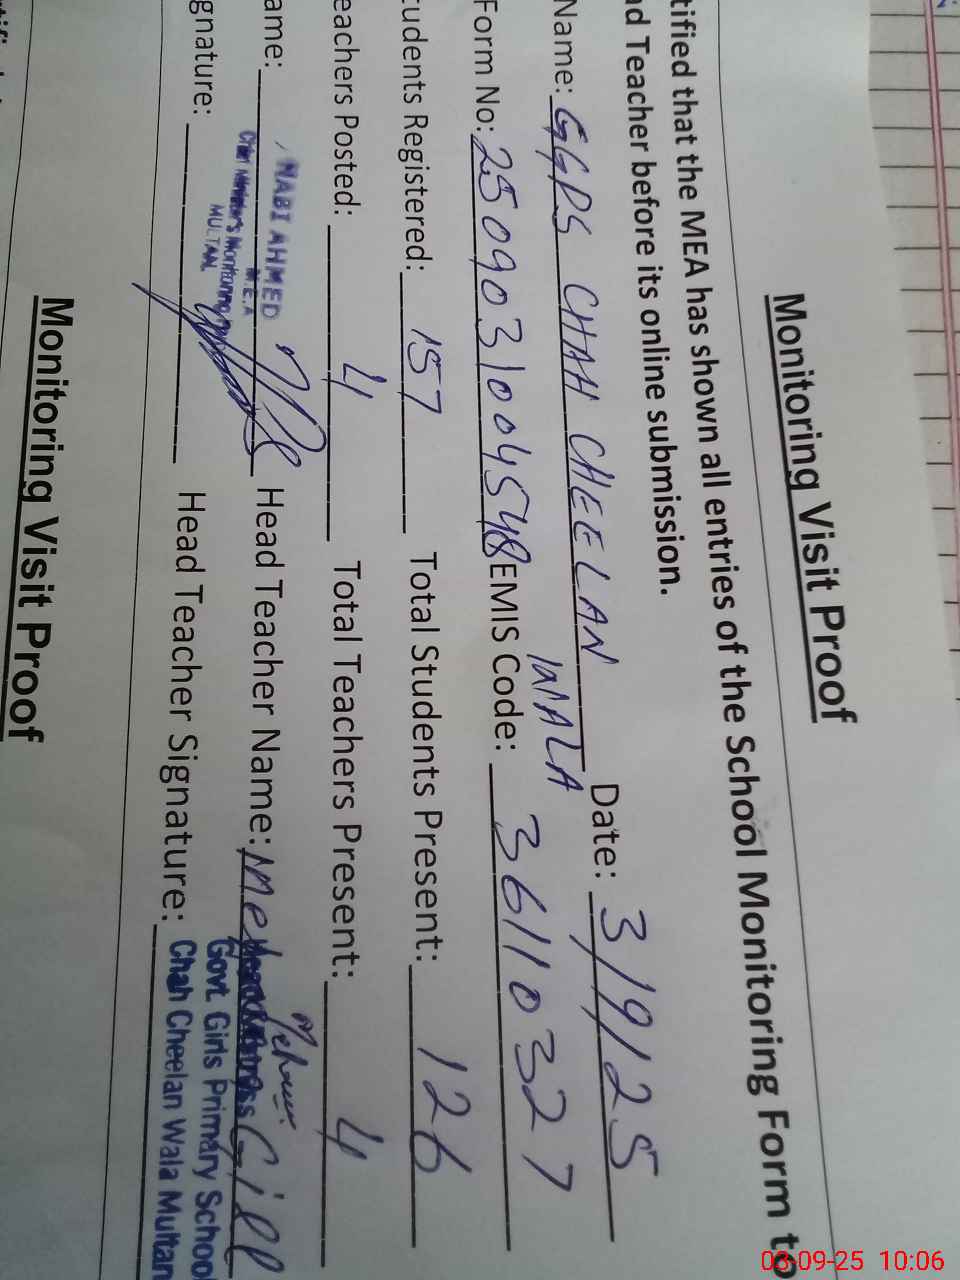 Monitoring Visit Proof
tified that the MEA has shown all entries of the School Monitoring Form to
ad Teacher before its online submission.
Name: GGPS CHAH CHEELAN WALA Date: 3/9/25
Form No: 2509031004548 EMIS Code: 36111037
tudents Registered: 157 Total Students Present: 126
eachers Posted: 4 Total Teachers Present: 4
ame: NABI AHMED Head Teacher Name: Gill
M.E.A
Chief Minister's Monitoring
MULTAN
gnature: Head Teacher Signature:
Headmistress
Govt Girls Primary School
Chah Cheelan Wala Multan
Monitoring Visit Proof
03-09-25 10:06